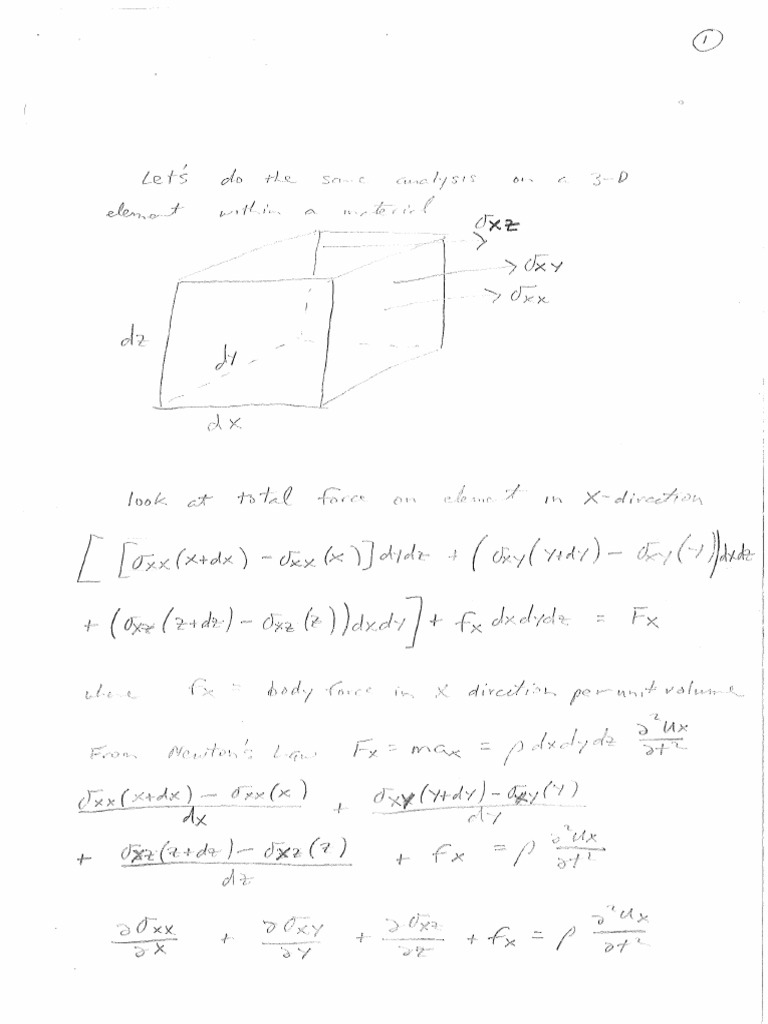 1
Let's do the same analysis on a 3-D
element within a material
σxz
σxy
σxx
dz
dy
dx
look at total force on element in X-direction
[ [σxx(x+dx) - σxx(x)]dydz + (σxy(y+dy) - σxy(y))dxdz
+ (σxz(z+dz) - σxz(z))dxdy] + fx dxdydz = Fx
where fx = body force in x direction per unit volume
From Newton's Law Fx = max = ρ dxdydz ∂²Ux/∂t²
σxx(x+dx) - σxx(x)/dx + σxy(y+dy) - σxy(y)/dy
+ σxz(z+dz) - σxz(z)/dz + fx = ρ ∂²Ux/∂t²
∂σxx/∂x + ∂σxy/∂y + ∂σxz/∂z + fx = ρ ∂²Ux/∂t²